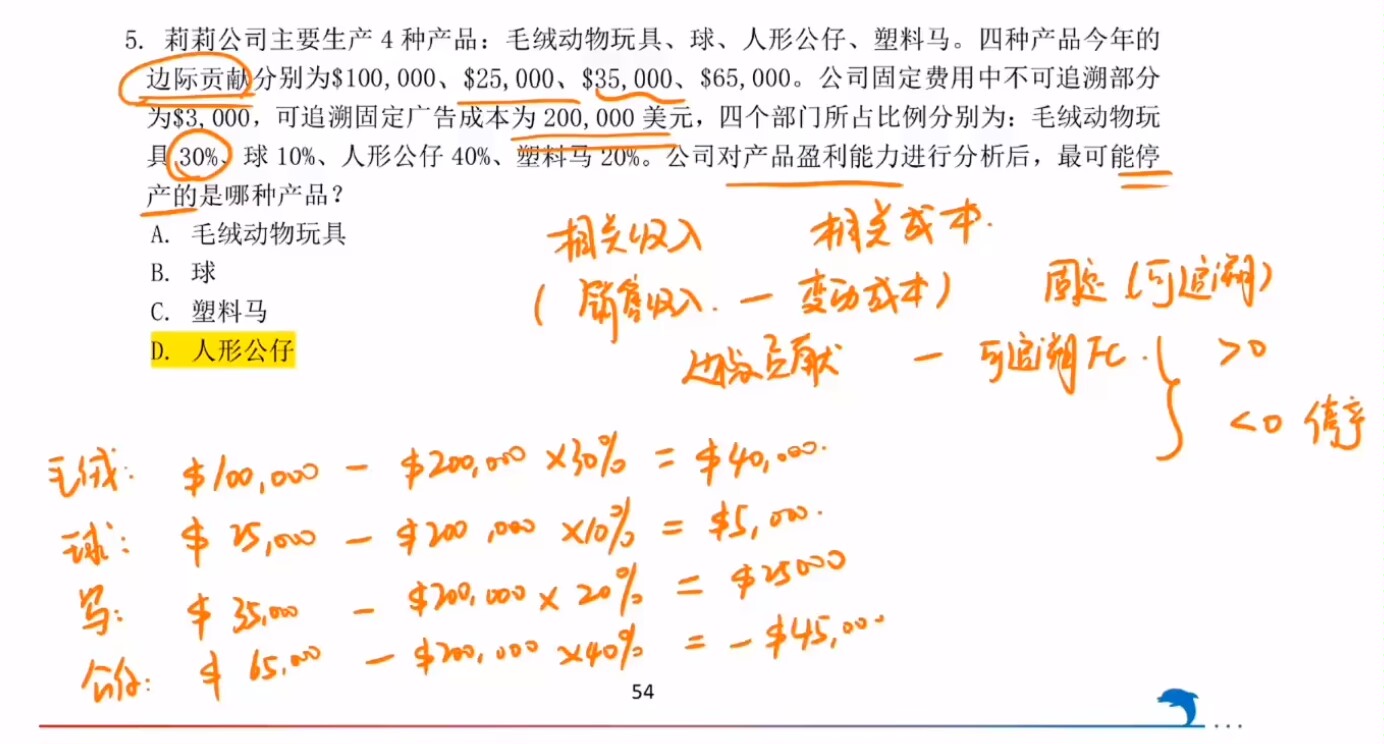 5. 莉莉公司主要生产 4 种产品：毛绒动物玩具、球、人形公仔、塑料马。四种产品今年的
边际贡献分别为$100,000、$25,000、$35,000、$65,000。公司固定费用中不可追溯部分
为$3,000，可追溯固定广告成本为 200,000 美元，四个部门所占比例分别为：毛绒动物玩
具 30%、球 10%、人形公仔 40%、塑料马 20%。公司对产品盈利能力进行分析后，最可能停
产的是哪种产品？
A. 毛绒动物玩具
B. 球
C. 塑料马
D. 人形公仔
相关收入 相关成本.
(销售收入. — 变动成本) 固定(可追溯)
边际贡献 — 可追溯FC. >0
<0 停产
毛绒: $100,000 — $200,000 ×30% = $40,000.
球: $25,000 — $200,000 ×10% = $5,000.
马: $35,000 — $200,000 × 20% = $25000
公仔: $65,000 — $200,000 ×40% = -$45,000
54